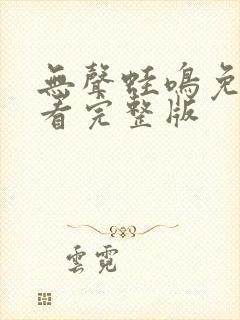 無聲蛙鳴免
看完整版
雲霓